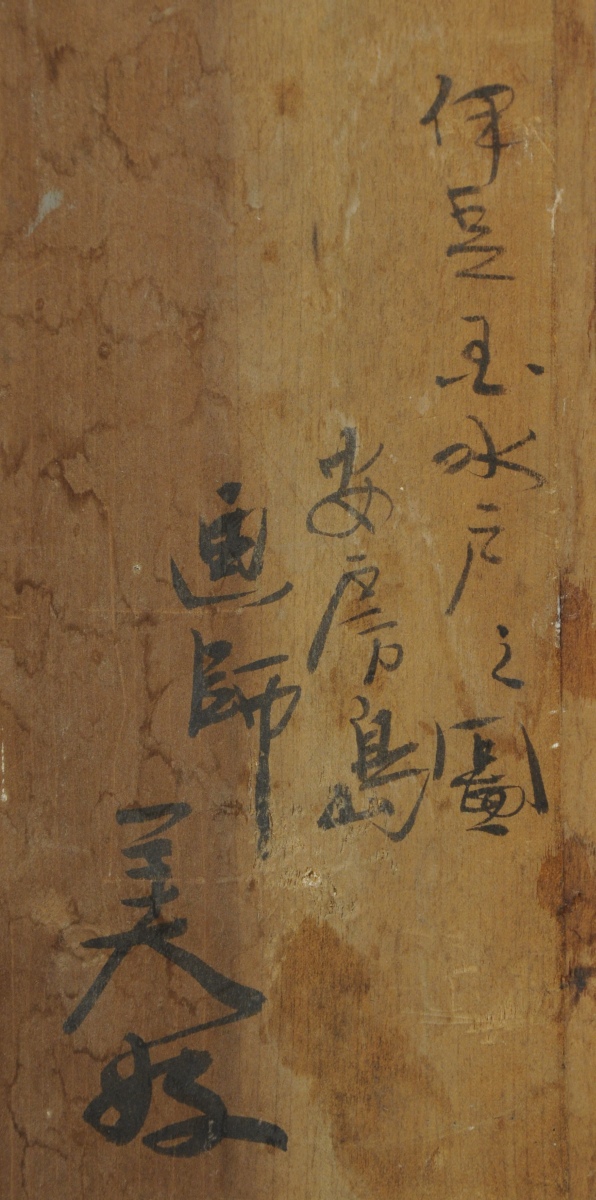 伊豆国水戸之圖
安房島
画師
美